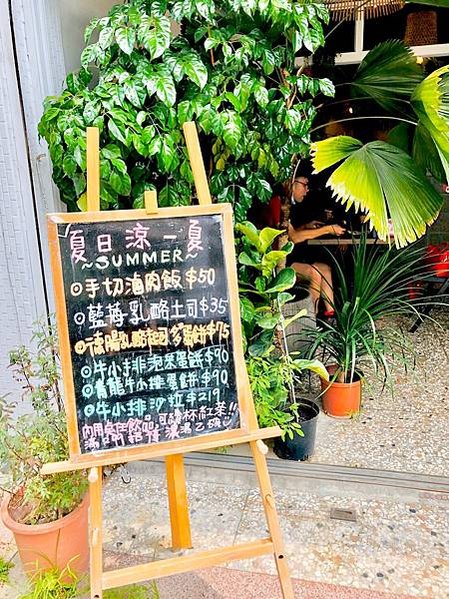 夏日涼一夏
~SUMMER~
手切滷肉飯 $50
藍莓乳酪土司 $35
德腸乳酪起司多蛋餅 $75
牛小排泡菜蛋餅 $90
青龍牛小排蛋餅 $90
牛小排沙拉 $219
內用桌任飲品 可 杯紅茶!!
湯乙碗